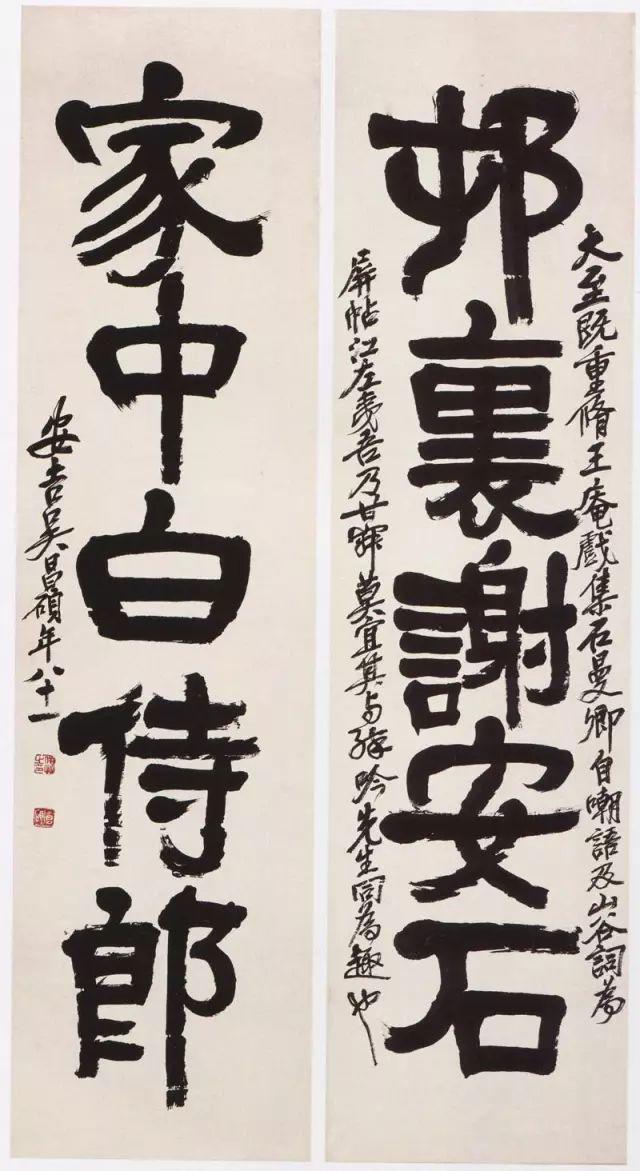 邨裏謝安石
大至既重脩王庵戲集石曼卿自嘲語及山谷詞為
屏帖江左夷吾乃甘 莫宜其 吟先生同為趣也
家中白侍郎
安吉吳昌碩年八十一